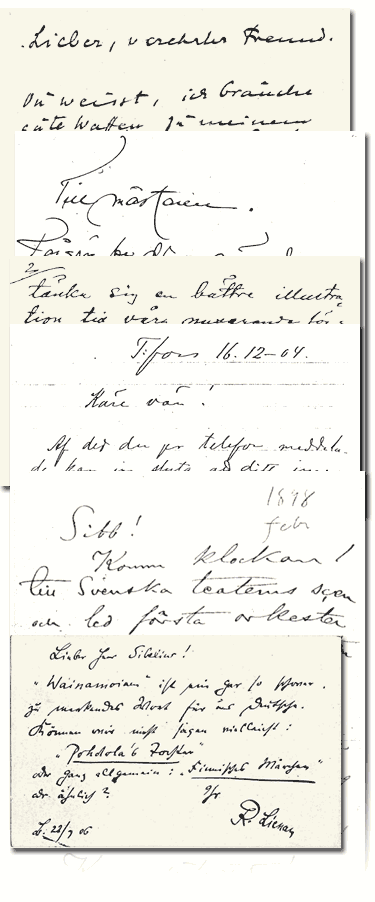 Lieber, verehrter Freund.
Du weisst, ich brauche
gute Waffen zu meinem
Till mästaren.
2/
tänka sig en bättre illustra-
tion till våra nuvarande för-
T:fors 16.12-04.
Käre vän!
Af det du per telefon meddela-
de kan jag sluta att ditt
1898
febr
Sibb!
Komm klockan 1
till Svenska teaterns scen
och led första orkester
Lieber Herr Sibelius!
"Wäinämoinen" ist ein gar so schwer
zu merkendes Wort für uns Deutsche.
Können wir nicht sagen vielleicht:
"Pohjola's Tochter"
oder ganz allgemein: "Finnisches Märchen"
oder ähnlich?
Ihr
R. Lienau
B. 28/7 06